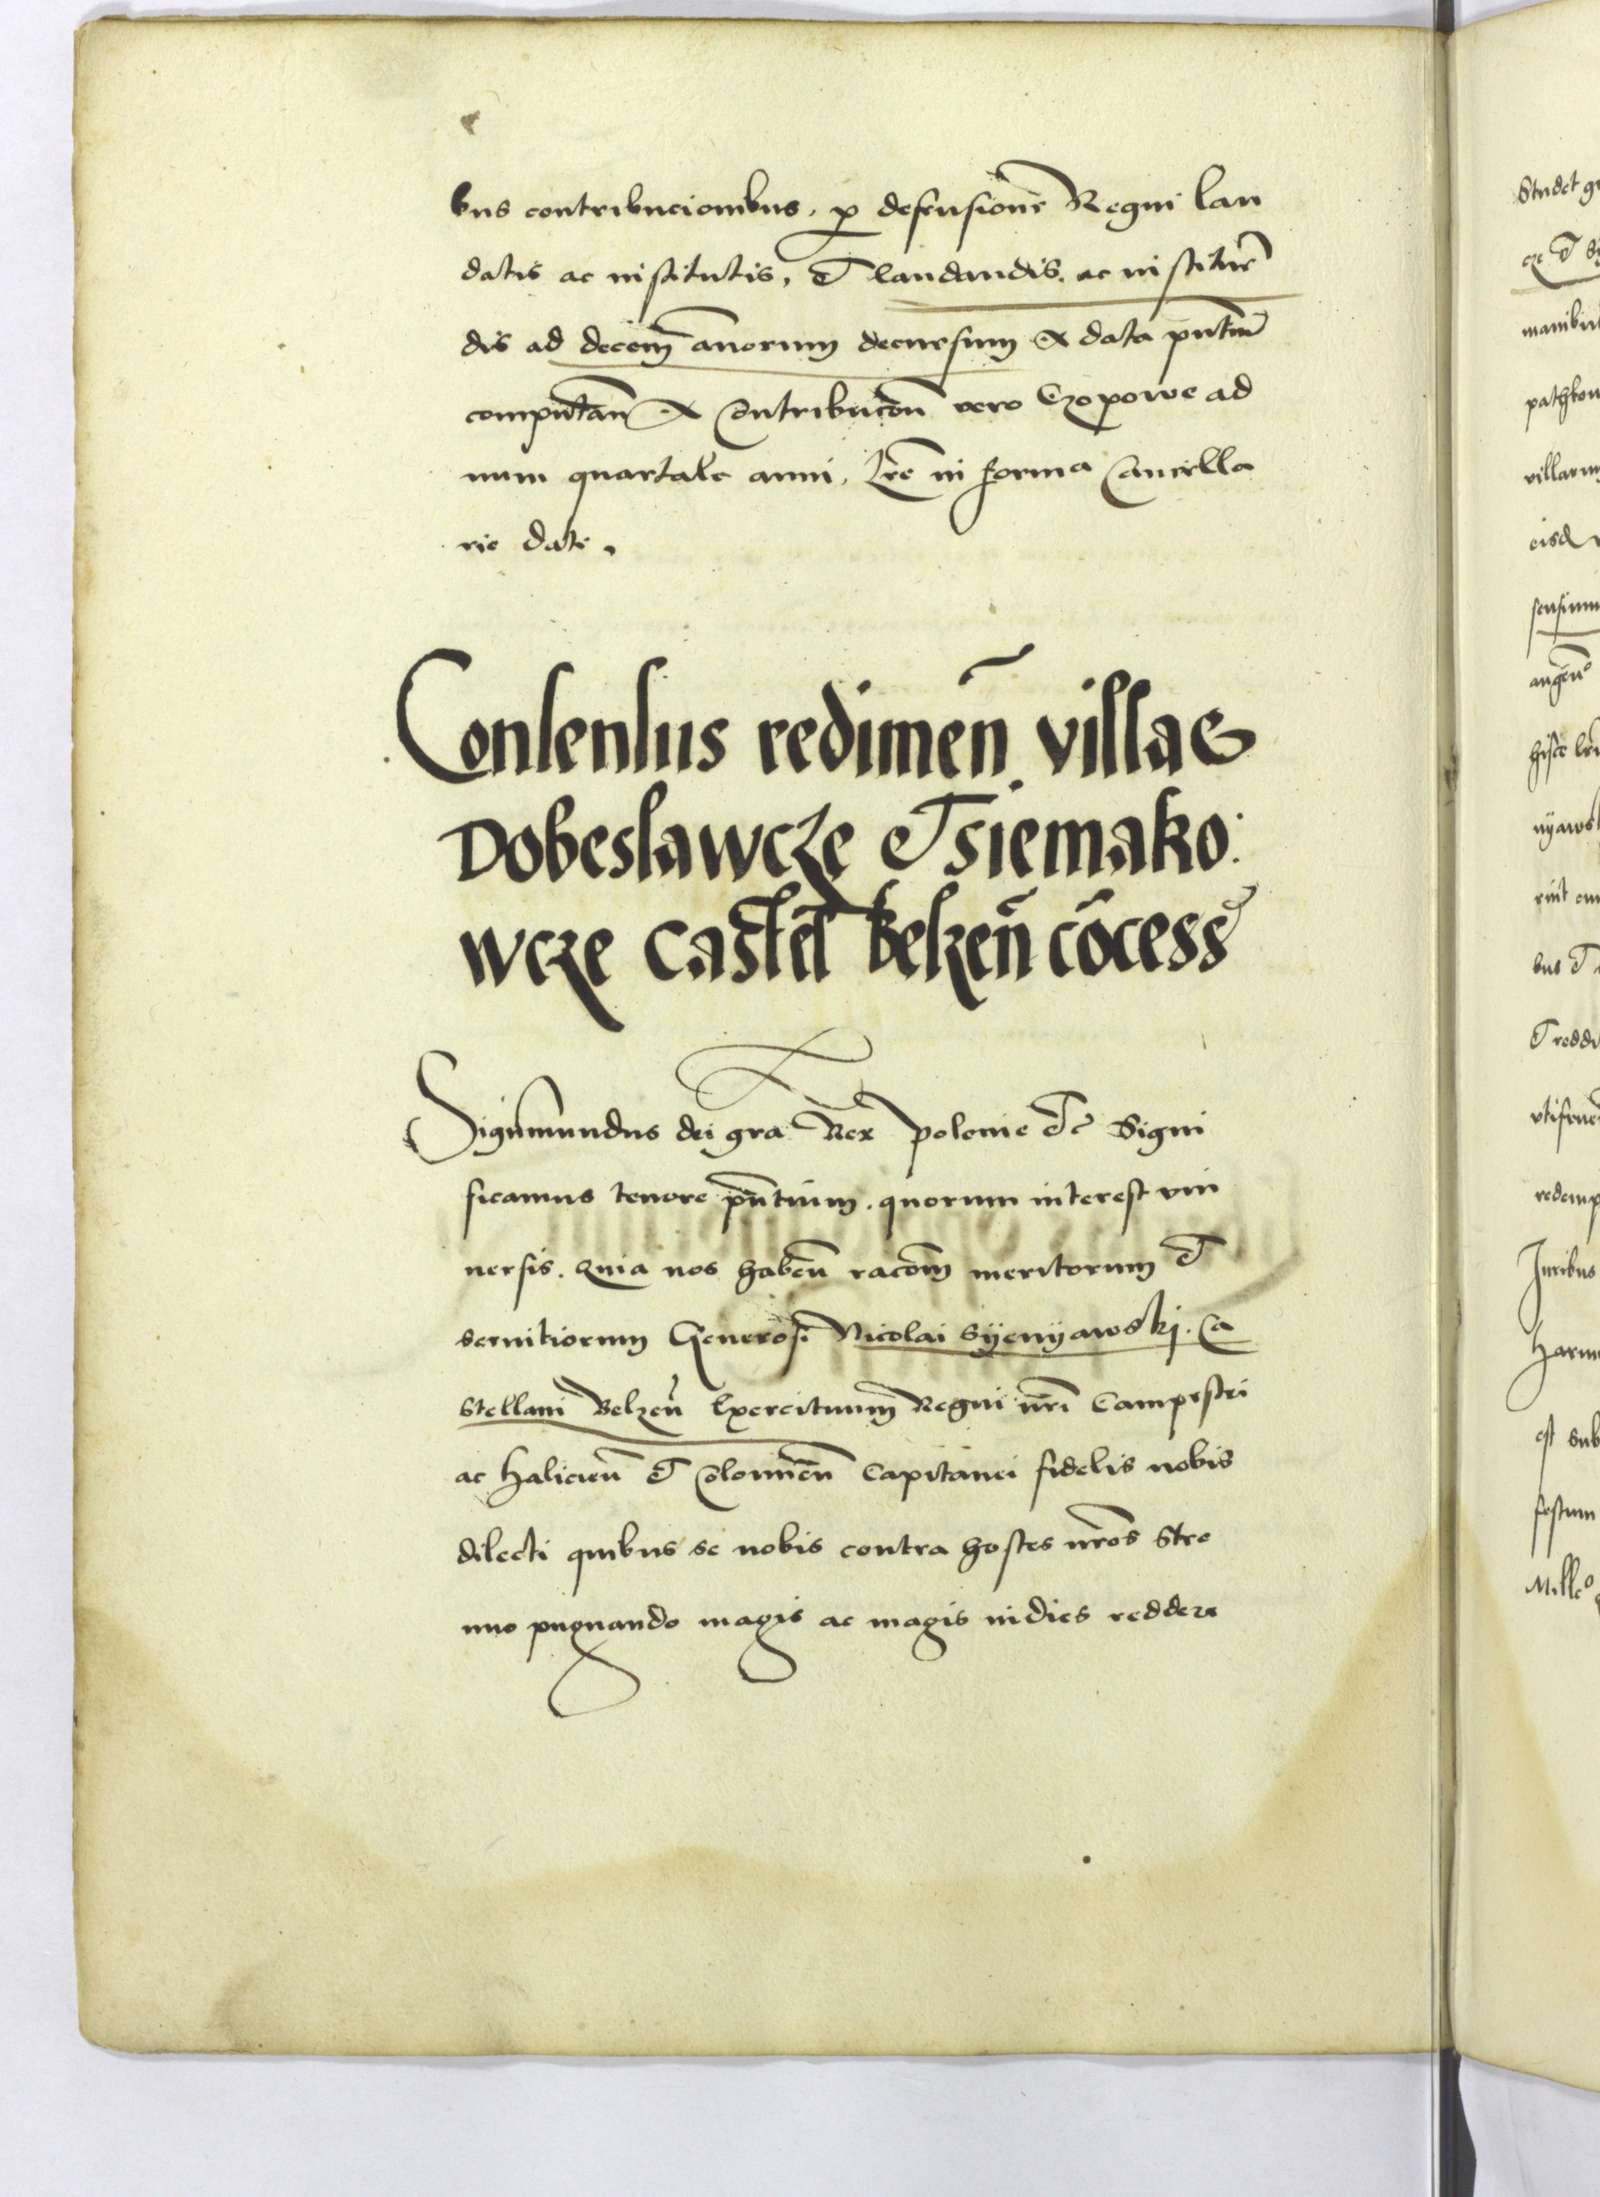 bus contribucionibus, ꝓ defensione Regni lau
datis ac institutis, et laudandis ac instituē
dis ad decem annorum decursum ex data pn̄tium
computan̄ ex Contribucōn vero Czopowe ad
unum quartale anni, Lr̄e in forma Cancella
rie date.
Consensus redimen̄ villae
Dobeslawcze et siemako:
wcze Castel̄ belzen̄ cōcess
Sigismundus dei gra Rex Polonie etc Signi
ficamus tenore pn̄tium. quorum interest vni
uersis. Quia nos haben̄ racōm meritorum et
seruitiorum Generosi Nicolai Syenyawskj. Ca
stellani Belzen̄ Exercituum Regni nr̄i Campestri
ac Halicien̄ et Colomien̄ Capitanei fidelis nobis
dilecti quibus se nobis contra hostes nr̄os Stre
nuo pugnando magis ac magis indies reddere
Studet
manibus
villarum
eisd
redemp
Iuribus
est sub
festum
Mill̄o